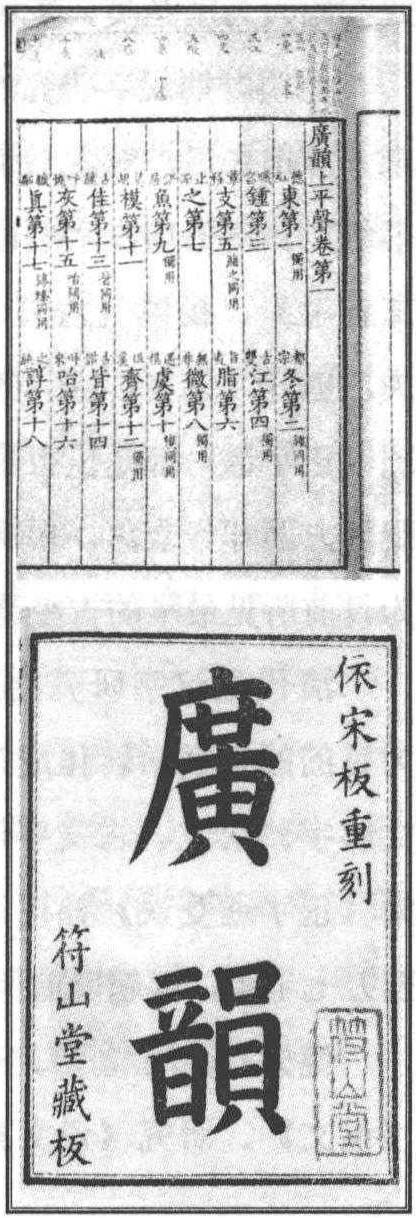 廣韻上平聲卷第一
東第一獨用
冬第二鍾同用
鍾第三
江第四獨用
支第五脂之同用
脂第六
之第七
微第八獨用
魚第九獨用
虞第十模同用
模第十一
齊第十二獨用
佳第十三皆同用
皆第十四
灰第十五咍同用
咍第十六
眞第十七諄臻同用
諄第十八
依宋板重刻
廣韻
符山堂藏板
符山堂